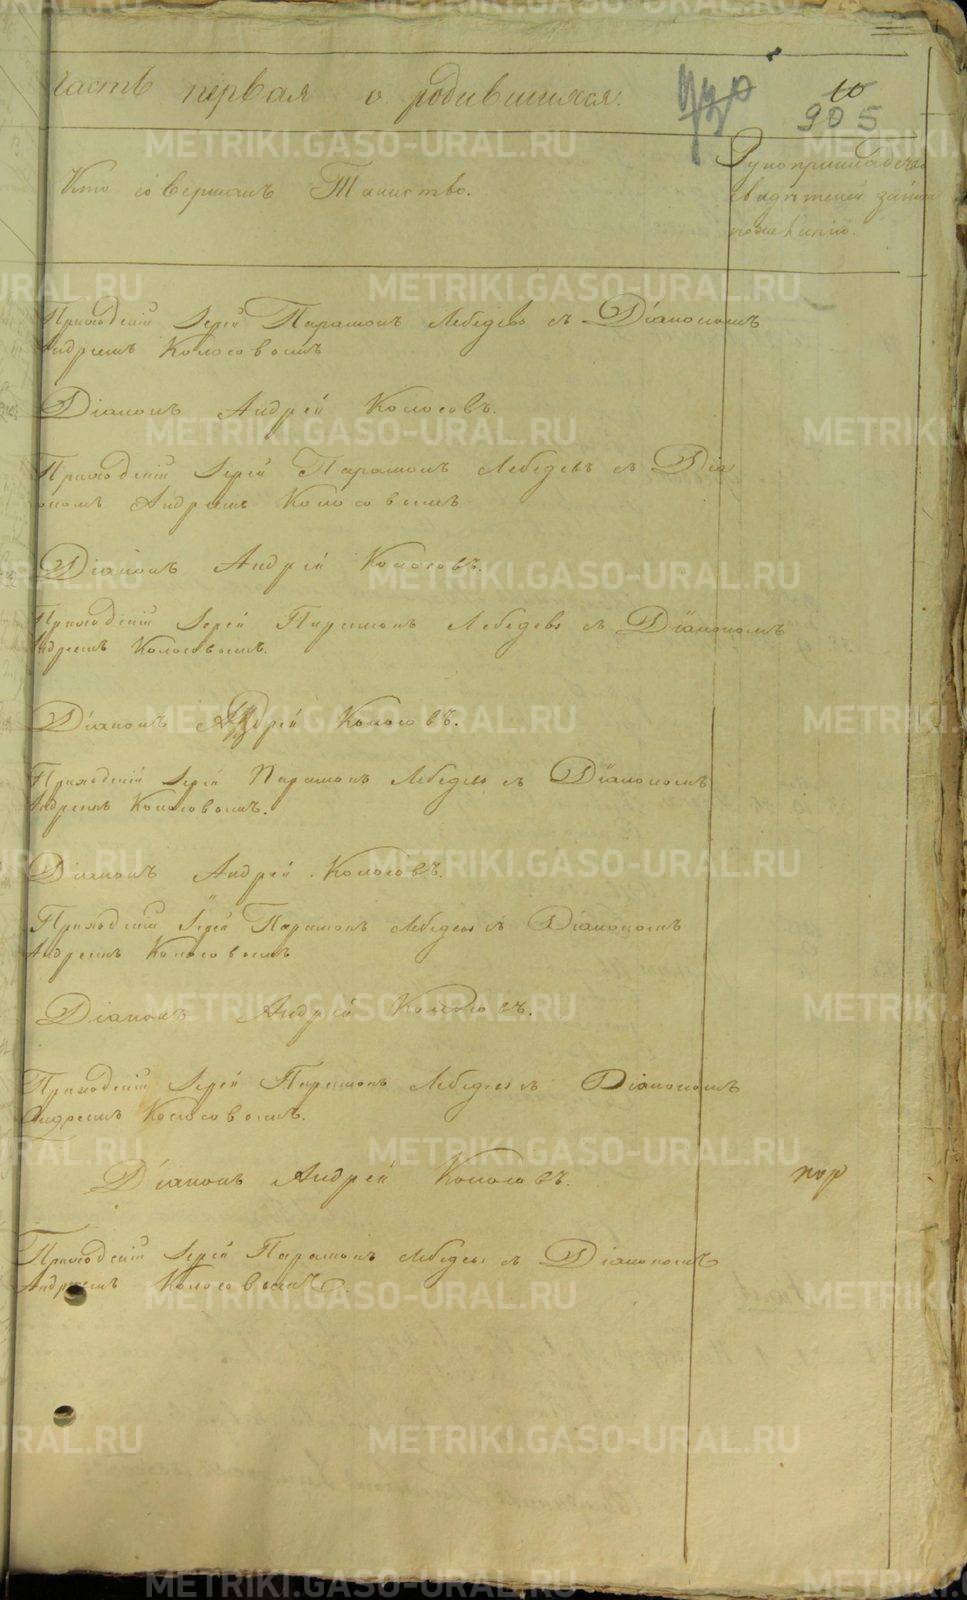 Часть первая о родившихся.
10
905
Кто совершалъ Таинство.
Рукоприкладство
свидѣтелей записи
по желанію.
Приходскій Іерей Парамонъ Лебедевъ съ Діакономъ
Андреемъ Колосовымъ
Діаконъ Андрей Колосовъ.
Приходскій Іерей Парамонъ Лебедевъ съ Діа
кономъ Андреемъ Колосовымъ
Діаконъ Андрей Колосовъ.
Приходскій Іерей Парамонъ Лебедевъ съ Діакономъ
Андреемъ Колосовымъ.
Діаконъ Андрей Колосовъ.
Приходскій Іерей Парамонъ Лебедевъ съ Діакономъ
Андреемъ Колосовымъ.
Діаконъ Андрей Колосовъ.
Приходскій Іерей Парамонъ Лебедевъ съ Діакономъ
Андреемъ Колосовымъ
Діаконъ Андрей Колосовъ.
Приходскій Іерей Парамонъ Лебедевъ съ Діакономъ
Андреемъ Колосовымъ.
Діаконъ Андрей Колосовъ.
Приходскій Іерей Парамонъ Лебедевъ съ Діакономъ
Андреемъ Колосовымъ.
METRIKI.GASO-URAL.RU